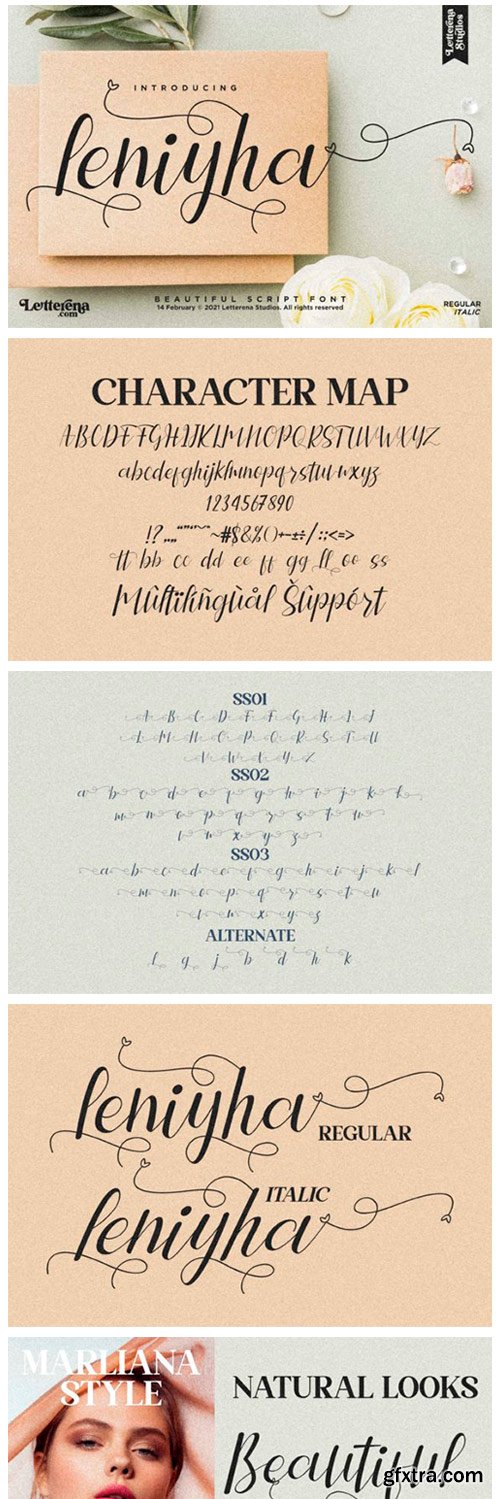 Letterena
Studios
INTRODUCING
leniyha
Letterena
.com
BEAUTIFUL SCRIPT FONT
14 February © 2021 Letterena Studios. All rights reserved
REGULAR
ITALIC
CHARACTER MAP
ABCDEFGHIJKLMNOPQRSTUVWXYZ
abcdefghijklmnopqrstuvwxyz
1234567890
tt bb cc dd ee ff gg ll oo ss
Mùltilíñgùål Šùppórt
SS01
A B C D E F G H I J
K L M N O P Q R S T U
V W X Y Z
SS02
a b c d e f g h i j k l
m n o p q r s t u
v w x y z
SS03
a b c d e f g h i j k l
m n o p q r s t u
v w x y z
ALTERNATE
l g j b d h k
leniyha
REGULAR
ITALIC
leniyha
MARLIANA
STYLE
NATURAL LOOKS
Beautiful
gfxtra.com